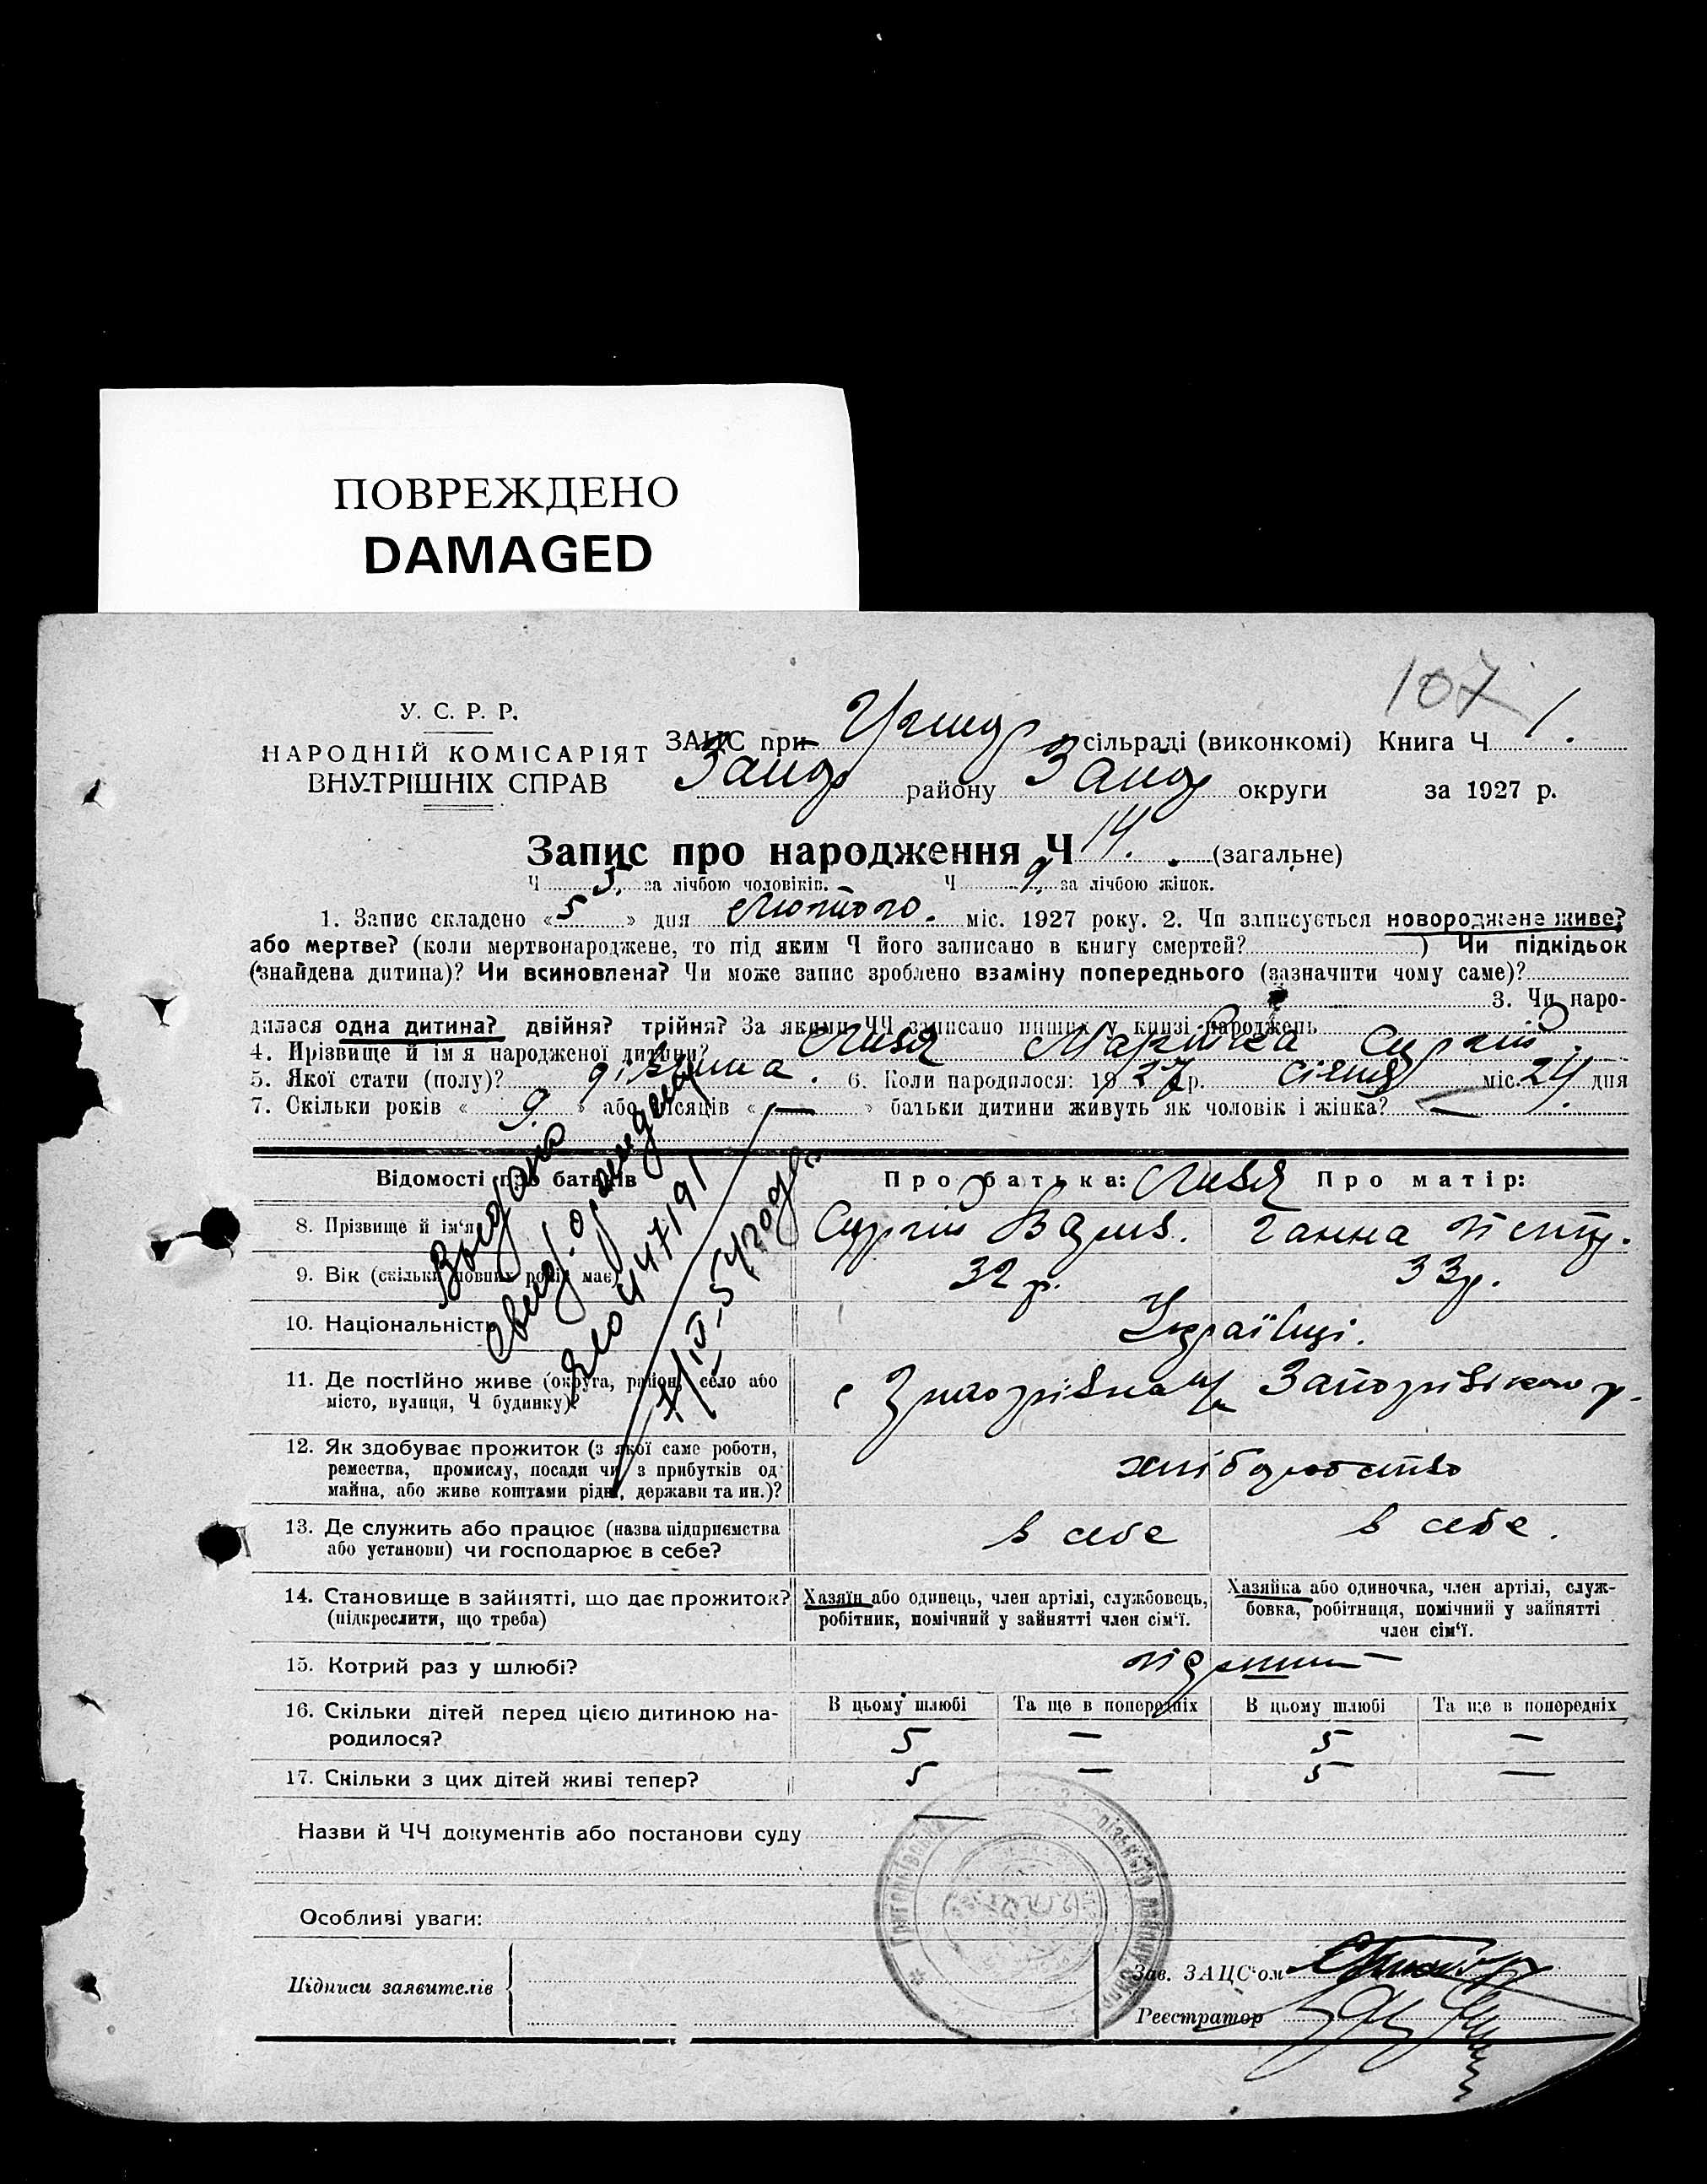 ПОВРЕЖДЕНО
DAMAGED
107
У. С. Р. Р.
НАРОДНІЙ КОМІСАРІЯТ
ВНУТРІШНІХ СПРАВ
ЗАЦС при сільраді (виконкомі) Книга Ч 1.
району округи за 1927 р.
Запис про народження Ч 14. (загальне)
Ч 5 за лічбою чоловіків. Ч 9 за лічбою жінок.
1. Запис складено «5» дня Лютого. міс. 1927 року. 2. Чи записується новороджене живе?
або мертве? (коли мертвонароджене, то під яким Ч його записано в книгу смертей? ) Чи підкідьок
(знайдена дитина)? Чи всиновлена? Чи може запис зроблено взаміну попереднього (зазначити чому саме)?
3. Чи наро-
дилася одна дитина? двійня? трійня? За якими ЧЧ записано инших у книзі народжень
4. Прізвище й ім'я народженої дитини?
5. Якої стати (полу)? дівчина. 6. Коли народилося: 1927 р. січня міс. 24 дня
7. Скільки років «9.» або місяців «—» батьки дитини живуть як чоловік і жінка? —
Відомості про батьків Про батька: Про матір:
8. Прізвище й ім'я Сергій Ганна
9. Вік (скільки повних років має) 32 р. 33 р.
10. Національність Українці.
11. Де постійно живе (округа, район, село або
місто, вулиця, Ч будинку)?
12. Як здобуває прожиток (з якої саме роботи,
ремества, промислу, посади чи з прибутків од
майна, або живе коштами рідні, держави та ин.)?
хліборобство
13. Де служить або працює (назва підприємства
або установи) чи господарює в себе?
в себе в себе.
14. Становище в зайнятті, що дає прожиток?
(підкреслити, що треба)
Хазяїн або одинець, член артілі, службовець,
робітник, помічний у зайнятті член сім'ї.
Хазяйка або одиночка, член артілі, служ-
бовка, робітниця, помічний у зайнятті
член сім'ї.
15. Котрий раз у шлюбі?
16. Скільки дітей перед цією дитиною на-
родилося?
В цьому шлюбі Та ще в попередніх В цьому шлюбі Та ще в попередніх
5 — 5 —
17. Скільки з цих дітей живі тепер? 5 — 5 —
Назви й ЧЧ документів або постанови суду
Особливі уваги:
Підписи заявителів
Зав. ЗАЦС'ом
Реєстратор